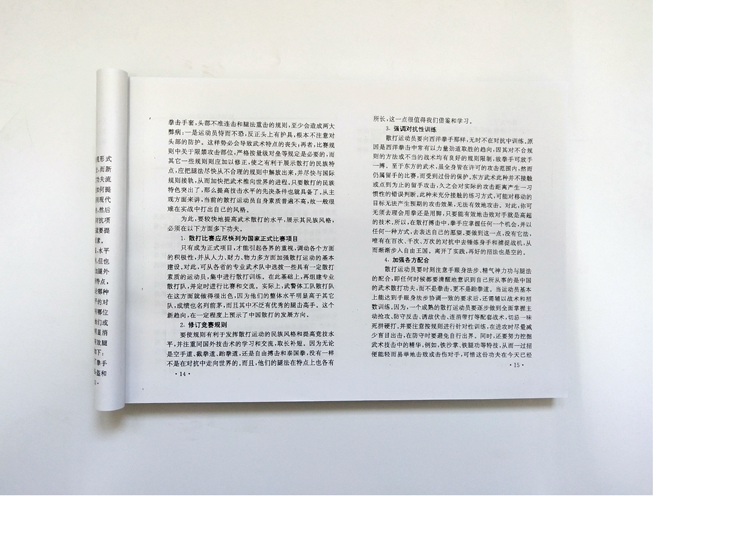 拳击手套,头部不准连击和腿法重击的规则,至少会造成两大
弊病:一是运动员恃而不恐,反正头上有护具,根本不注意对
头部的防护。这样势必会导致武术特点的丧失;再者,比赛规
则中关于限禁攻击部位,严格按量级对垒等规定是必要的,而
其它一些规则则应加以修正,使之有利于展示它的民族特
点,应把腿法尽快从不合理的规则中解放出来,并尽快与国际
规则接轨,从而加快把武术推向世界的进程。只要散打的民族
特色突出了,那么提高技击水平的先决条件也就具备了,从主
观方面来讲,当前的散打运动员自身素质普遍不高,故一般很
难在实战中打出自己的风格。
为此,要较快地提高武术散打的水平,展示其民族风格,
必须在以下方面多下功夫。
1. 散打比赛应尽快列为国家正式比赛项目
只有成为正式项目,才能引起各界的重视,调动各个方面
的积极性,并从人力、财力、物力多方面加强散打运动的基本
建设。对此,可从各省的专业武术队中选拔一些具有一定散打
素质的运动员,集中进行散打训练。在此基础上,再组建专业
散打队,并定时进行比赛和交流。实际上,武警体工队散打队
在这方面就做得很出色,因为他们的整体水平明显高于其它
队,成绩也名列前茅,而且其中不泛有优秀的腿击高手。这个
新趋向,在一定程度上预示了中国散打的发展方向。
2. 修订竞赛规则
要使规则有利于发挥散打运动的民族风格和提高竞技水
平,并注重同国外技击术的学习和交流,取长补短。因为无论
是空手道、截拳道、跆拳道,还是自由搏击和泰国拳,没有一样
不是在对抗中走向世界的,而且,他们的腿法在特点上也各有
· 14 ·
所长,这一点很值得我们借鉴和学习。
3. 强调对抗性训练
散打运动员要向西洋拳手那样,无时不在对抗中训练,原
因是西洋拳击中常有以力量胁迫取胜的趋向,因其对不合规
则的方法或不当的战术均有良好的规则限制,故拳手可放手
一搏。至于东方的武术,虽全身皆在许可的攻击范围内,然而
仍属留手的比赛,而受到过份的保护。东方武术此种并不接触
或点到为止的留手攻击,久之会对实际的攻击距离产生一习
惯性的错误判断,此种未充分接触的练习方式,可能对移动的
目标无法产生预期的攻击效果,无法有效地攻击。对此,你可
无须去理会用拳还是用脚,只要能有效地击败对手就是高超
的技术,所以,在散打搏击中,拳手应掌握任何一个机会,并以
任何一种方式,去表达自己的愿望。要做到这一点,没有它法,
唯有在百次、千次、万次的对抗中去锤炼身手和捕捉战机,从
而渐渐步入自由王国。离开了实践,再好的招法也是空的。
4. 加强各方配合
散打运动员要时刻注意手眼身法步、精气神力功与腿法
的配合,即任何时候都要清醒地意识到自己所从事的是中国
的武术散打功夫,而不是拳击,更不是跆拳道。当运动员基本
上能达到手眼身法步协调一致的要求后,还需辅以战术和招
数训练。因为,一个成熟的散打运动员要逐步做到全面掌握主
动抢攻、防守反击、诱敌伏击、连消带打等配套战术,切忌一味
死拼硬打,并要注意按规则进行针对性训练,在进攻时尽量减
少盲目出击,在防守时要避免自行出界。同时,还要努力挖掘
武术技击中的精华,例如,铁沙掌、铁腿功等特技,从而一过招
便能轻而易举地击败或击伤对手,可惜这份功夫在今天已经
· 15 ·